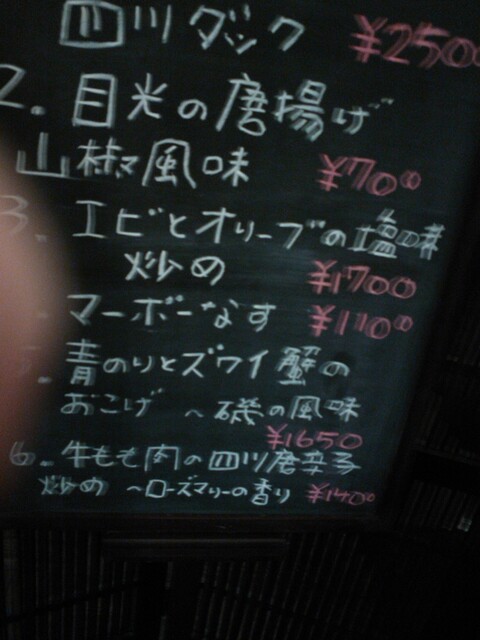 四川ダック ¥2500
2. 目光の唐揚げ
山椒風味 ¥700
3. エビとオリーブの塩
炒め ¥1700
マーボーなす ¥1100
5. 青のりとズワイ蟹の
おこげ ~磯の風味
¥1650
6. 牛もも肉の四川唐辛子
炒め ~ローズマリーの香り ¥1400